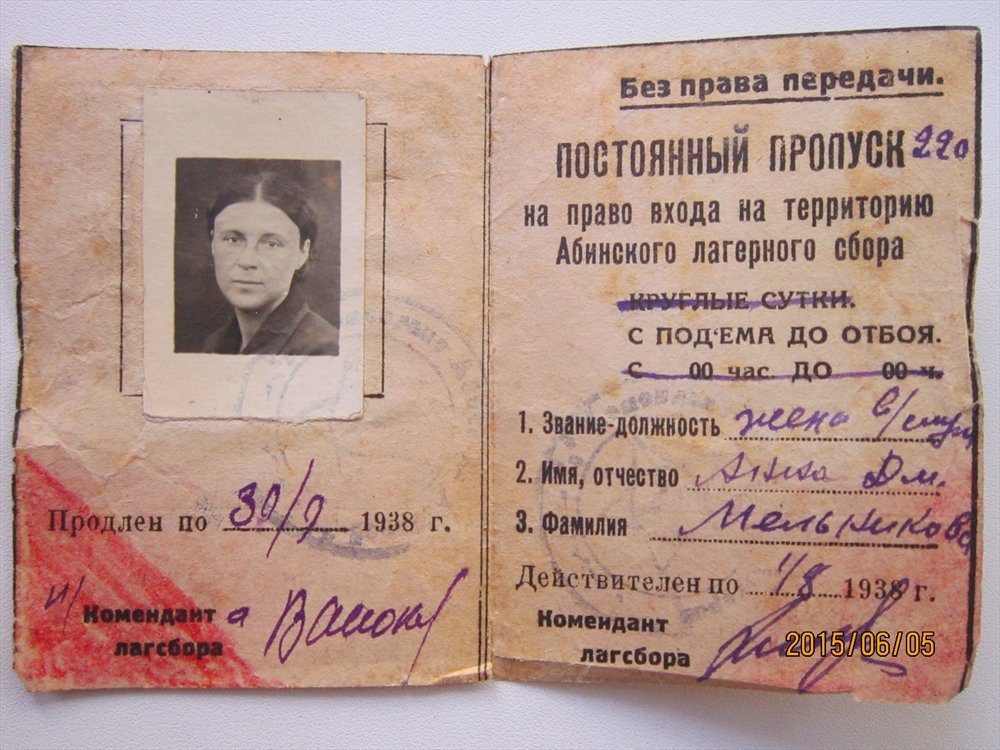 Продлен по 30/9 1938 г.
Комендант
лагсбора
Без права передачи.
ПОСТОЯННЫЙ ПРОПУСК 220
на право входа на территорию
Абинского лагерного сбора
КРУГЛЫЕ СУТКИ.
С ПОД'ЕМА ДО ОТБОЯ.
С 00 час. ДО 00 ч.
1. Звание-должность жена
2. Имя, отчество Анна Дм.
3. Фамилия Мельникова
Действителен по 1/8 1938 г.
Комендант
лагсбора
2015/06/05